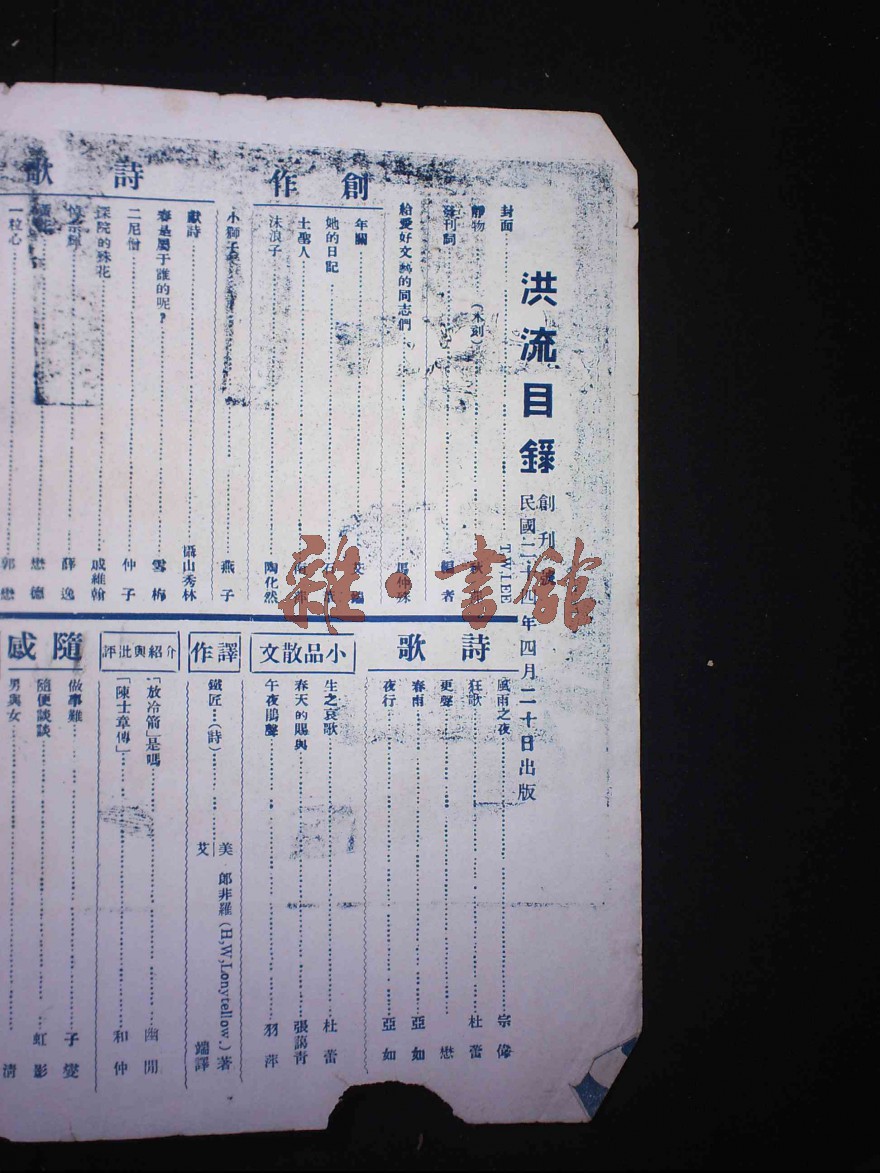 洪流目錄
創刊號
民國二十四年四月二十日出版
封面 T.W.LEE
靜物(木刻)
發刊詞 編者
給愛好文藝的同志們 馬仲殊
創作
年關
她的日記
土聖人
沫浪子 陶化然
小獅子 燕子
詩歌
獻詩 聶山秀林
春是屬于誰的呢? 雪梅
二尼僧 仲子
深院的殊花 戚維翰
薛逸
懋德
一粒心 郭懋
詩歌
風雨之夜 宗偉
狂歌 杜蕾
更聲 懋
春雨 亞如
夜行 亞如
小品散文
生之哀歌 杜蕾
春天的賜與 張藹青
午夜鵑聲 羽萍
譯作
鐵匠…(詩) 美 郎非羅(H,W,Lonytellow.)著
艾端譯
介紹與批評
「放冷箭」是嗎 幽閒
「陳士章傳」 和仲
隨感
做事難 子燮
隨便談談 虹影
男與女 清
雜·書館